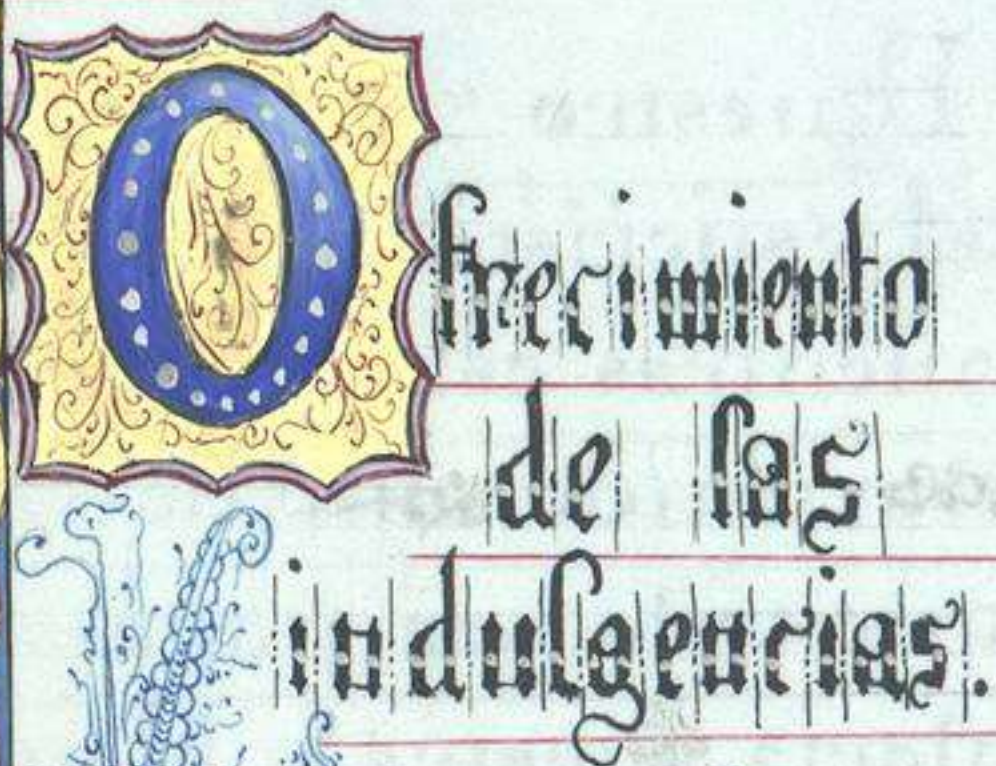 Ofrecimiento
de las
indulgencias.